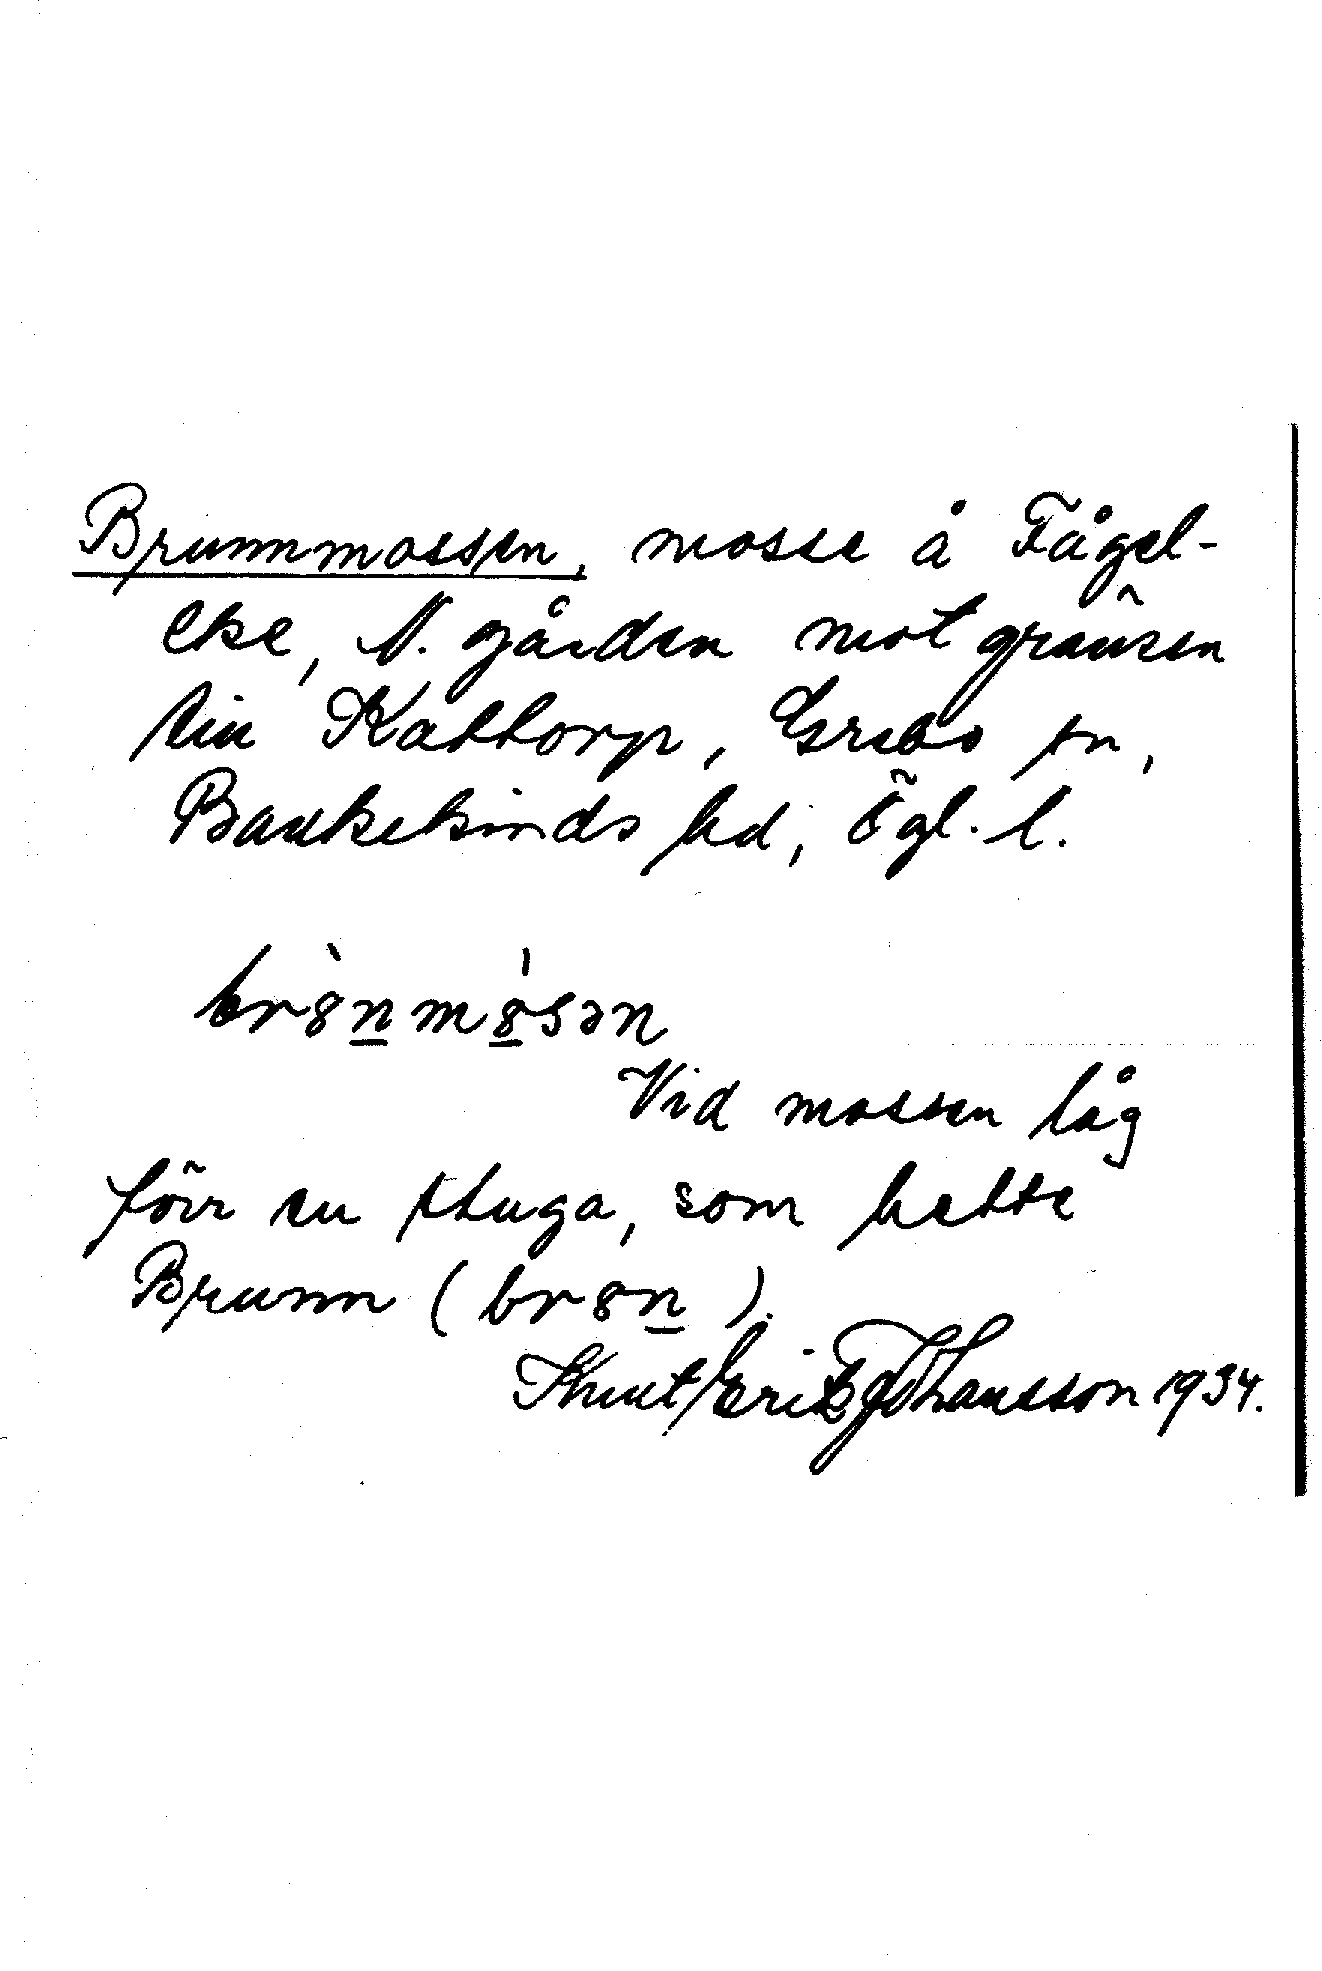 Brunnmossen, mosse å Fågel-
eke, N. gården mot gränsen
till Kattorp, Grebo sn,
Bankekinds hd, Ögl. l.
brònmósən
Vid mossen låg
förr en stuga, som hette
Brunn (bron).
Knut Erik Johansson 1934.